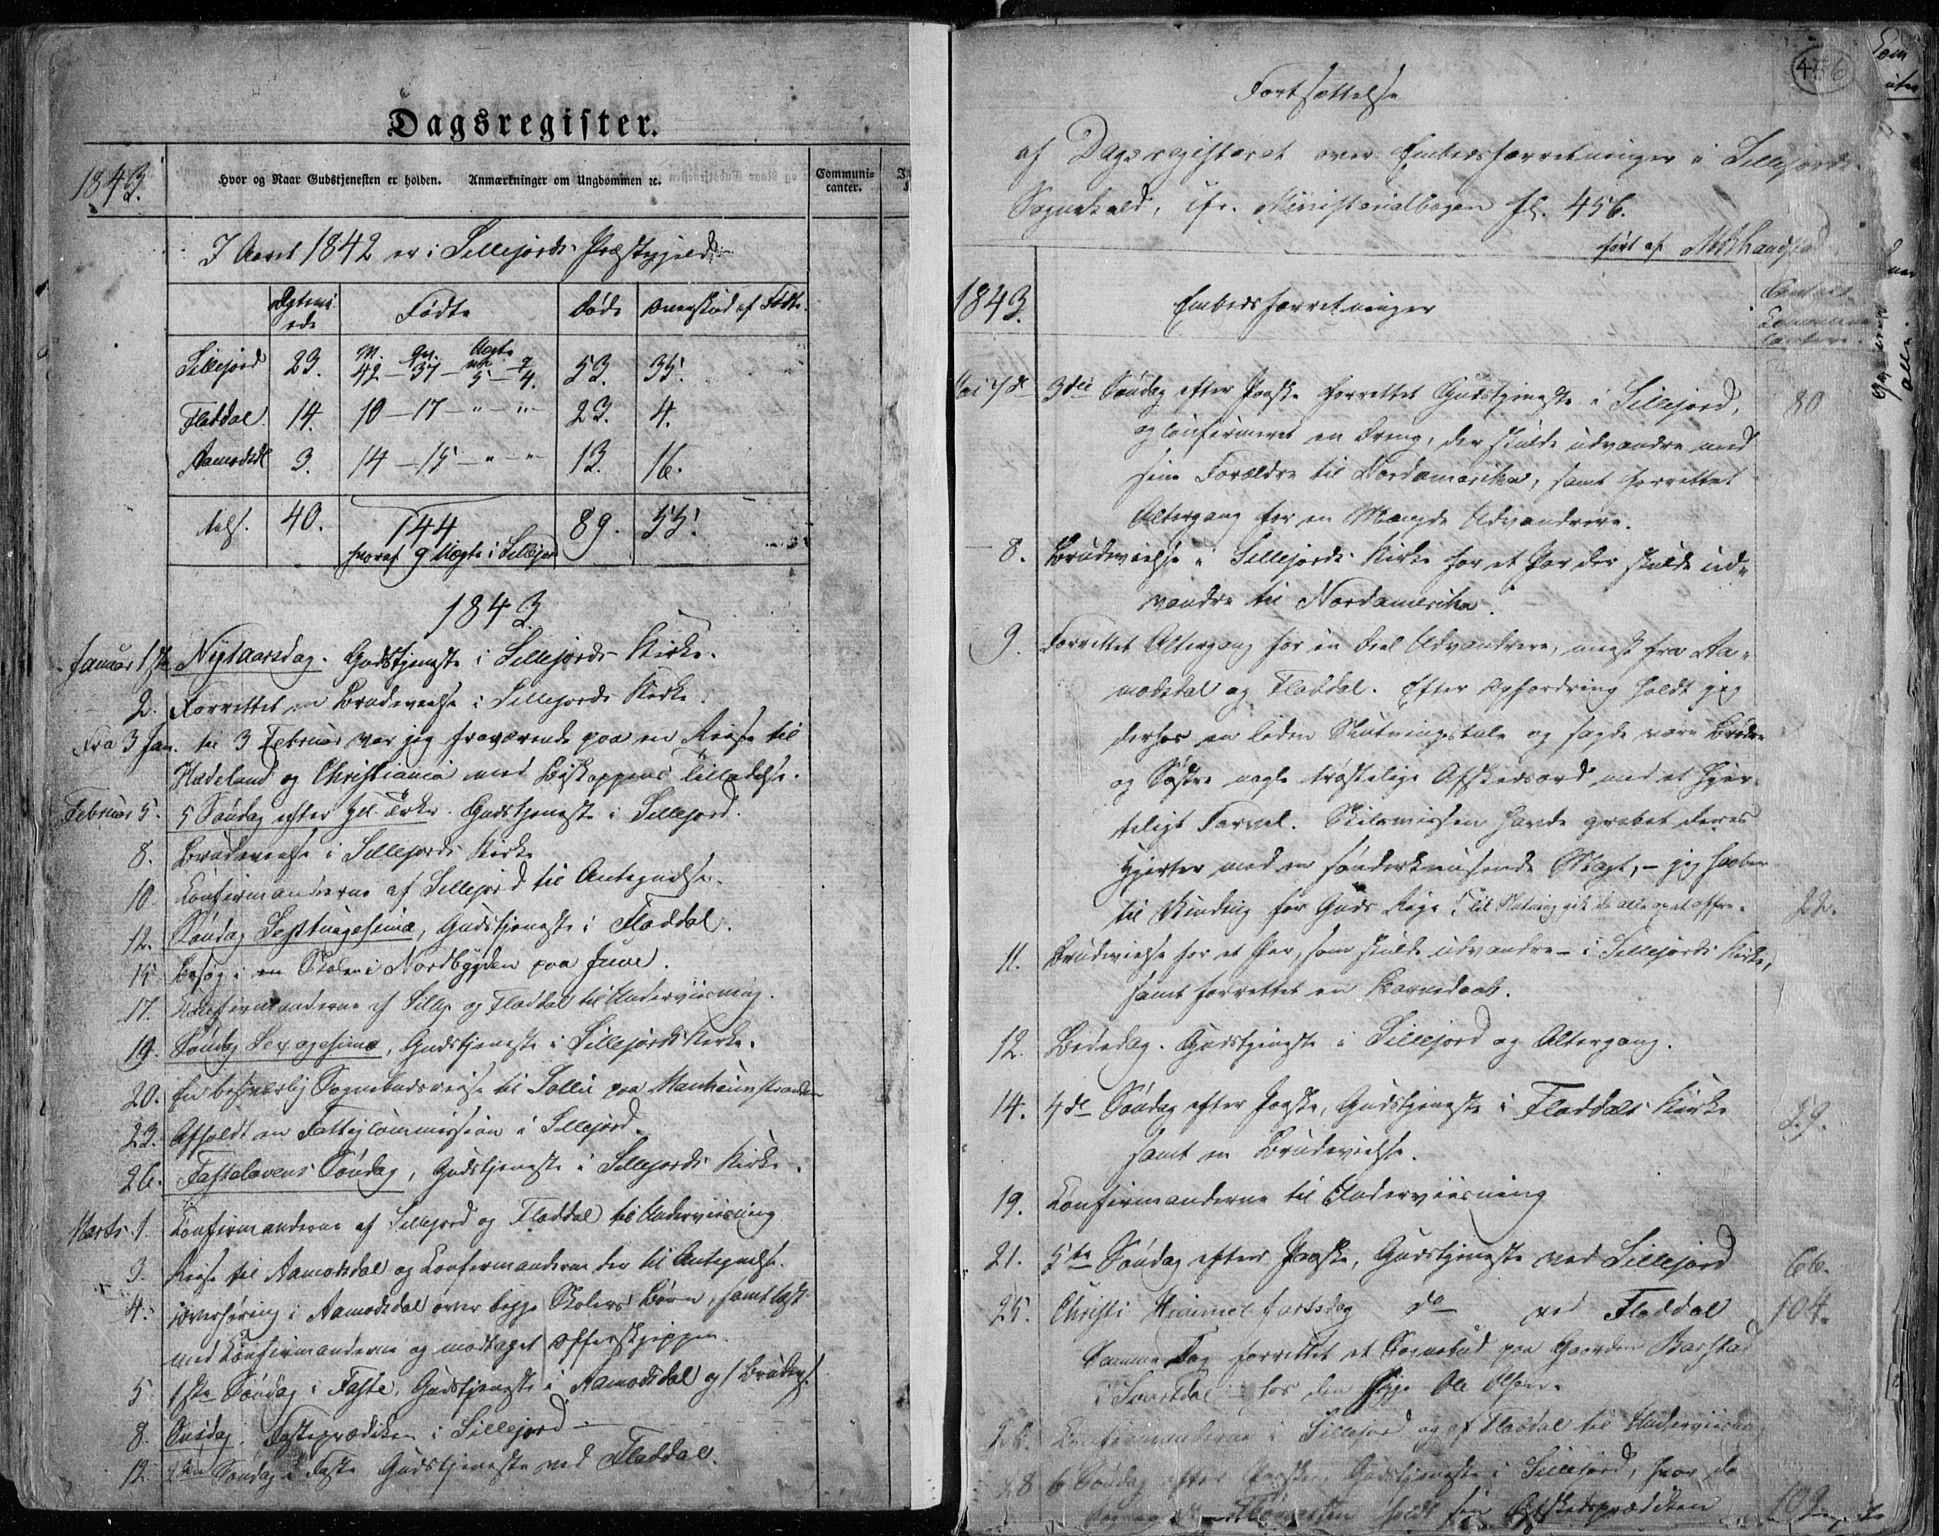 Dagsregister.
1843.
Hvor og Naar Gudstjenesten er holden. Anmærkninger om Ungdommen ꝛc.
Communi-
canter.
I Aaret 1842 er i Sillejords Præstegjeld
Fødte Døde Overskud af Fødte.
Sillejord 23. 42 - 37 - 5 - 4. 53. 35.
Fladdal 14. 10 - 17 - " - " 23. 4.
Aamodsdl 3. 14 - 15 - " - " 13. 16.
tils. 40. 144 89. 55.
hvoraf 9 Uægte i Sillejord
1843
Januar 1ste Nytaarsdag. Gudstjeneste i Sillejords Kirke.
2. Forrettet en Brudevielse i Sillejords Kirke.
Fra 3 Jan. til 3 Februar var jeg fraværende paa en Reise til
Hadeland og Christiania med Biskoppens Tilladelse.
Februar 5. 5 Søndag efter Hel. Tr. Kr. Gudstjeneste i Sillejord.
8. Brudevielse i Sillejords Kirke
10. Confirmanderne af Sillejord til Antegnelse.
12. Søndag Septuagesima, Gudstjeneste i Fladdal.
15 Besøg i en Skole i Nordbygden paa Juve.
17. Confirmanderne af Sillej. og Fladdal til Underviisning.
19. Søndag Sexagesima, Gudstjeneste i Sillejords Kirke.
20. En besværlig Sognebudsreise til Sollie paa Manheimstranden
23. Afholdt en Fattigcommission i Sillejord.
26. Fastelavens Søndag, Gudstjeneste i Sillejords Kirke.
Marts 1. Confirmanderne af Sillejord og Fladdal til Underviisning
3. Reise til Aamodsdal og Confirmanderne der til Antegnelse.
4. Overhøring i Aamodsdal over begge Skolers Børn, samt læst
med Confirmanderne og modtaget Offerskjeppen.
5. 1ste Søndag i Faste, Gudstjeneste i Aamodsdal og 1 Brudev.
8. Onsdag. Fasteprædiken i Sillejord
12. 2den Søndag i Faste Gudstjeneste ved Fladdal.
456
Fortsættelse
af Dagsregisteret over Embedsforretninger i Sillejords
Sognekald, cfr. Ministerialbogen fol. 456.
ført af
1843. Embedsforretninger
Mai 7de 3die Søndag efter Paaske forrettet Gudstjeneste i Sillejord, 80
og confirmeret en Dreng, der skulde udvandre med
sine Forældre til Nordamerika, samt forrettet
Altergang for en Mængde Udvandrere.
8. Brudevielse i Sillejords Kirke for et Par der skulde ud-
vandre til Nordamerika.
9. Forrettet Altergang for en Deel Udvandrere, mest fra Aa-
modsdal og Fladdal. Efter Opfordring holdt jeg
derhos en liden Slutningstale og sagde vore Brødre
og Søstre nogle trøstelige Afskedsord med et hjer-
teligt Farvel. Skilsmissen havde grebet deres
Hjerter med en sønderknusende Magt, - jeg haaber
til Vinding for Guds Rige. Til Slutning gik de alle op at offre. 22.
11. Brudevielse for et Par, som skulde udvandre - i Sillejords Kirke,
samt forrettet en Barnedaab.
12. Bededag. Gudstjeneste i Sillejord og Altergang.
14. 4de Søndag efter Paaske, Gudstjeneste i Fladdals Kirke 29.
samt en Brudevielse.
19. Confirmanderne til Underviisning
21. 5te Søndag efter Paaske, Gudstjeneste ved Sillejord 66.
25. Christi Himmelfartsdag do ved Fladdal 104.
Samme Dag forrettet et Sognebud paa Gaarden Barstad
i Svartdal - hos den syge Ole Olsen.
26. Confirmanderne i Sillejord og af Fladdal til Underviisning
28 6 Søndag efter Paaske, Gudstjeneste i Sillejord, hvor da
holdt sin Afskedsprædiken 109.